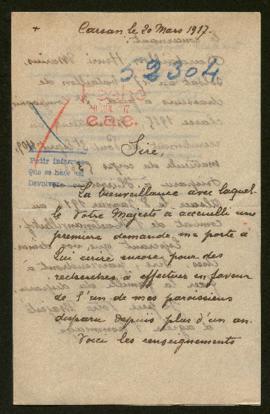 Carsan le 20 Mars 1917.
52304
Sire,
Pedir informes
que se hace con
La bienveillance avec laquel
le Votre Majesté a accueilli une
première demande me porte à
Lui écrire encore pour des
recherches à effectuer en faveur
de l'un de mes paroissiens
disparu depuis plus d'un an.
Voici les renseignements